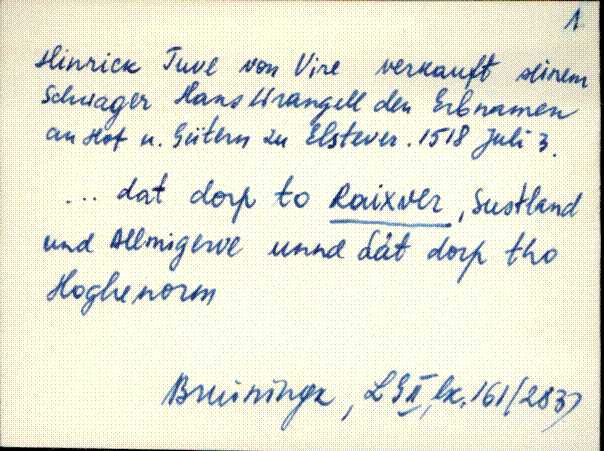 1
Hinrick Tuve von Vire verkauft seinem
Schwager Hans Wrangell den Erbnamen
an Hof u. Gütern zu Elstever. 1518 Juli 3.
... dat dorp to Raixver, Sustland
und Allmigerve unnd dat dorp tho
Hoghenorm
Bruiningk, LG II, lk. 161 (283)